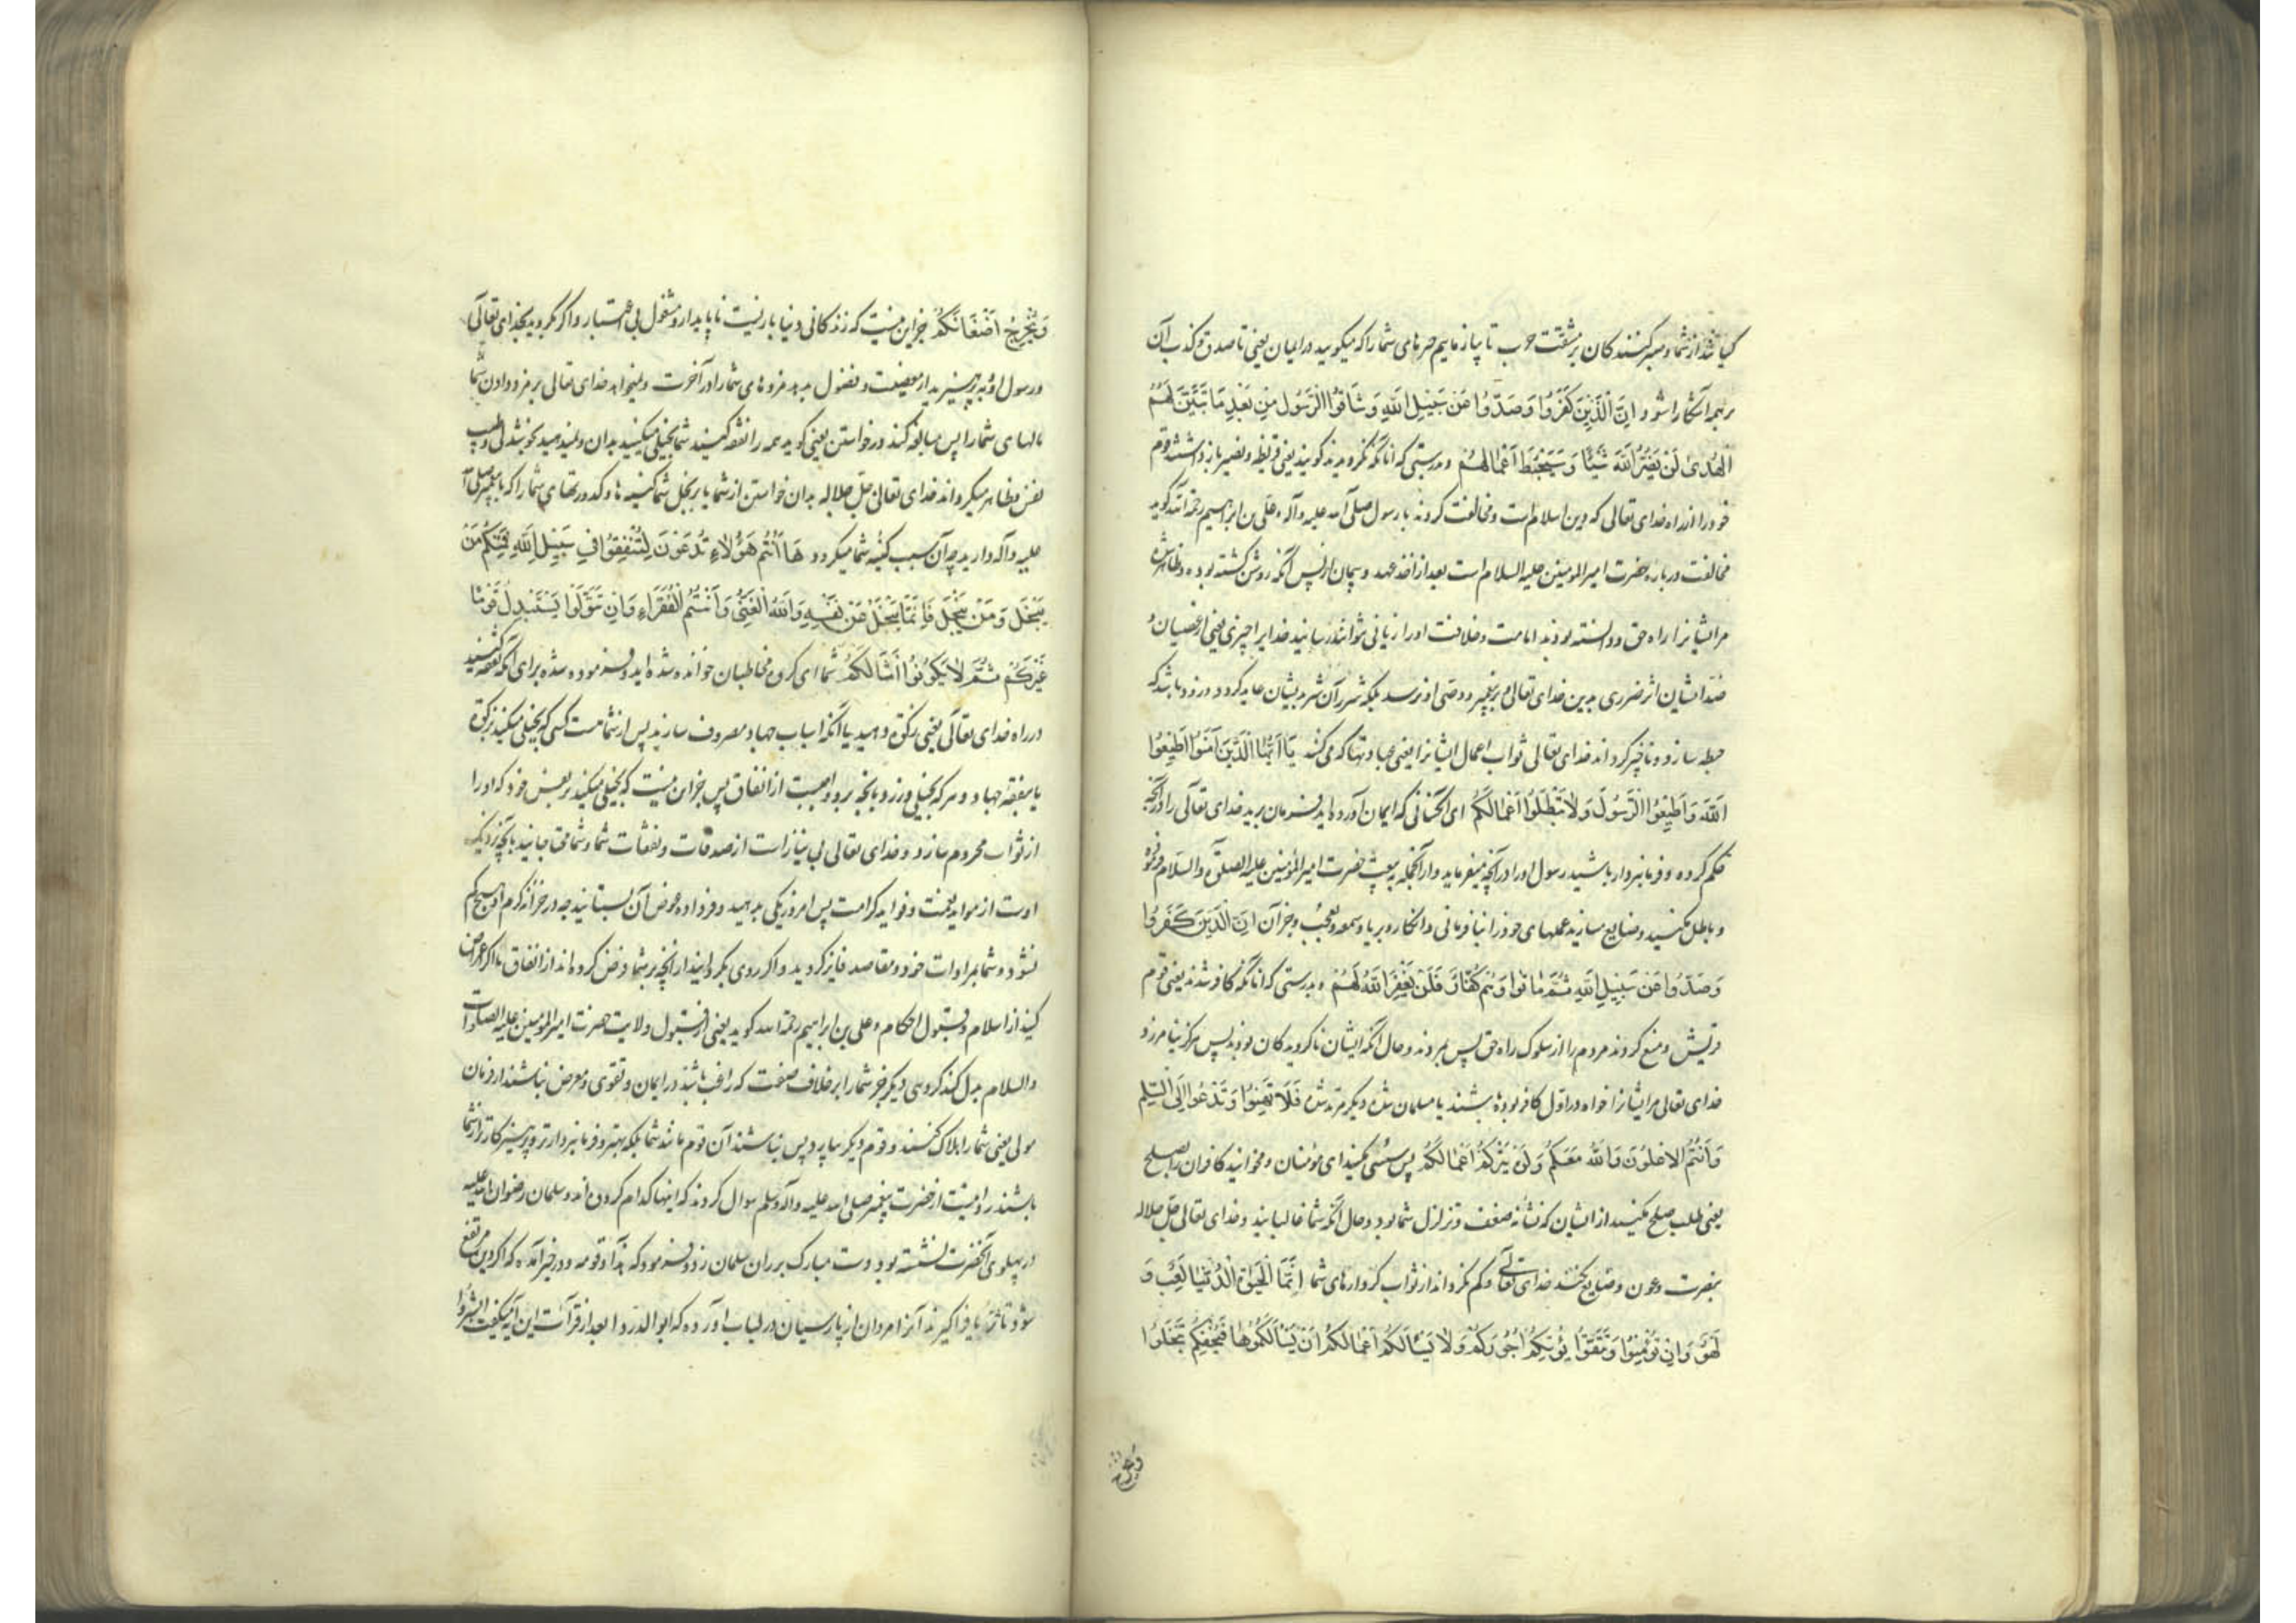 کیانند از شما و صبر کنندگان بر مشقت حرب تا بیازماییم خبرهای شما را که میکویید در ایمان یعنی تا صدق و کذب آن
بر همه آشکارا شود إِنَّ الَّذِينَ كَفَرُوا وَصَدُّوا عَن سَبِيلِ اللَّهِ وَشَاقُّوا الرَّسُولَ مِن بَعْدِ مَا تَبَيَّنَ لَهُمُ
الْهُدَىٰ لَن يَضُرُّوا اللَّهَ شَيْئًا وَسَيُحْبِطُ أَعْمَالَهُمْ و بدرستی که آنانکه نکرویدند کویند یعنی قریظه و نضیر باز داشتند قوم
خود را از راه خدای تعالی که دین اسلام است و مخالفت کردند با رسول صلی الله علیه وآله و علی بن ابراهیم رحمه الله کوید
مخالفت درباره حضرت امیرالمومنین علیه السلام است بعد از اخذ عهد و پیمان از پس آنکه روشن کشته بوده و ظاهر شده
مر ایشانرا راه حق و دانسته بودند امامت و خلافت او را زیانی نتوانند رسانید خدایرا چیزی یعنی از عصیان و
ضد ایشان اثر ضرری بدین خدای تعالی و بر پیغمبر و وصی او نرسد بلکه شرر آن شر بدیشان عاید کردد و زود باشد که
حبطه سازد و ناچیز کرداند خدای تعالی ثواب اعمال ایشانرا یعنی عبادتها که می کنند يَا أَيُّهَا الَّذِينَ آمَنُوا أَطِيعُوا
اللَّهَ وَأَطِيعُوا الرَّسُولَ وَلَا تُبْطِلُوا أَعْمَالَكُمْ ای آنکسانی که ایمان آورده اید فرمان برید خدای تعالی را در آنچه
حکم کرده و فرمانبردار باشید رسول او را در آنچه میفرماید و از آنجمله بیعت حضرت امیرالمؤمنین علیه الصلوة والسلام فرموده
و باطل مکنید و ضایع مسازید عملهای خود را بنافرمانی و انکار و بریا و سمعه و تعجب و جز آن إِنَّ الَّذِينَ كَفَرُوا
وَصَدُّوا عَن سَبِيلِ اللَّهِ ثُمَّ مَاتُوا وَهُمْ كُفَّارٌ فَلَن يَغْفِرَ اللَّهُ لَهُمْ و بدرستی که آنانکه کافر شدند یعنی قوم
قریش و منع کردند مردم را از سلوک راه حق پس بمردند و حال آنکه ایشان ناکرویدکان بودند پس هرکز نیامرزد
خدای تعالی مر ایشانرا خواه در اول کافر بوده باشند یا مسلمان شده دیکر مرتد شده فَلَا تَهِنُوا وَتَدْعُوا إِلَى السَّلْمِ
وَأَنتُمُ الْأَعْلَوْنَ وَاللَّهُ مَعَكُمْ وَلَن يَتِرَكُمْ أَعْمَالَكُمْ پس سستی مکنید ای مؤمنان و مخوانید کافران را بصلح
یعنی طلب صلح مکنید از ایشان که نشانه ضعف و تزلزل شما بود و حال آنکه شما غالبانید و خدای تعالی جل جلاله
بنصرت و عون و ضایع نکند خدای تعالی و کم نکرداند از ثواب کردارهای شما إِنَّمَا الْحَيَوةُ الدُّنْيَا لَعِبٌ وَ
لَهْوٌ وَإِن تُؤْمِنُوا وَتَتَّقُوا يُؤْتِكُمْ أُجُورَكُمْ وَلَا يَسْأَلْكُمْ أَمْوَالَكُمْ إِن يَسْأَلْكُمُوهَا فَيُحْفِكُمْ تَبْخَلُوا
ویخرج
وَيُخْرِجْ أَضْغَانَكُمْ جز این نیست که زندکانی دنیا بازیست ناپایدار و مشغول بی اعتبار و اکر بکروید بخدای تعالی
و رسول او و بپرهیزید از معصیت و فضول بدهد مزدهای شما را در آخرت و نخواهد خدای تعالی بر مزد دادن شما
مالهای شما را پس مبالغه کند در خواستن یعنی کوید همه را نفقه کنید شما بخیلی میکنید بدان و نمیدهید بخوشدلی و طیب
نفس و ظاهر میکرداند خدای تعالی جل جلاله بدان خواستن از شما یا بر بخل شما کینه ها و کدورتهای شما را که با پیغمبر صلی الله
علیه وآله دارید چه آن سبب کینه شما میکردد هَا أَنتُمْ هَؤُلَاءِ تُدْعَوْنَ لِتُنفِقُوا فِي سَبِيلِ اللَّهِ فَمِنكُم مَّن
يَبْخَلُ وَمَن يَبْخَلْ فَإِنَّمَا يَبْخَلُ عَن نَّفْسِهِ وَاللَّهُ الْغَنِيُّ وَأَنتُمُ الْفُقَرَاءُ وَإِن تَتَوَلَّوْا يَسْتَبْدِلْ قَوْمًا
غَيْرَكُمْ ثُمَّ لَا يَكُونُوا أَمْثَالَكُمْ شما ای کروه مخاطبان خوانده شده اید و فرموده شده برای آنکه نفقه کنید
در راه خدای تعالی یعنی زکوة دهید یا آنکه اسباب جهاد مصروف سازید پس از شما هست کسی که بخیلی میکند بزکوة
یا بنفقه جهاد و هر که بخیلی ورزد بآنچه برو واجبست از انفاق پس جز این نیست که بخیلی میکند بر نفس خود که او را
از ثواب محروم سازد و خدای تعالی بی نیاز است از صدقات و نفقات شما و شما محتاجانید بآنچه نزدیک
اوست از مواید نعمت و فواید کرامت پس امروز یکی بدهید و فردا ده عوض آن بستانید چه در خزانه کرم او هیچ کم
نشود و شما بمرادات خود و مقاصد فایز کردید و اکر روی بکردانید از آنچه بر شما فرض کرده اند از انفاق یا اکر اعراض
کنید از اسلام و قبول احکام و علی بن ابراهیم رحمه الله کوید یعنی از قبول ولایت حضرت امیرالمومنین علیه الصلوات
والسلام بدل کند کروهی دیکر جز شما را بر خلاف صفت که راغب باشند در ایمان و تقوی و معرض نباشند از فرمان
مولی یعنی شما را هلاک کنند و قوم دیکر بیاید و پس نباشند آن قوم مانند شما بلکه بهتر و فرمانبردارتر و پرهیزکارتر از شما
باشند روایتست از حضرت پیغمبر صلی الله علیه وآله وسلم سوال کردند که اینها کدام کروه اند و سلمان رضوان الله علیه
در پهلوی آنحضرت نشسته بود دست مبارک بر ران سلمان زد و فرمود که هذا و قومه و در خبر آمده که اکر دین مرتفع
شود تا ثریا فراکیرند آنرا مردان از پارسیان در لباب آورده که ابوالدردا بعد از قرآئت این آیه میکفت ابشروا